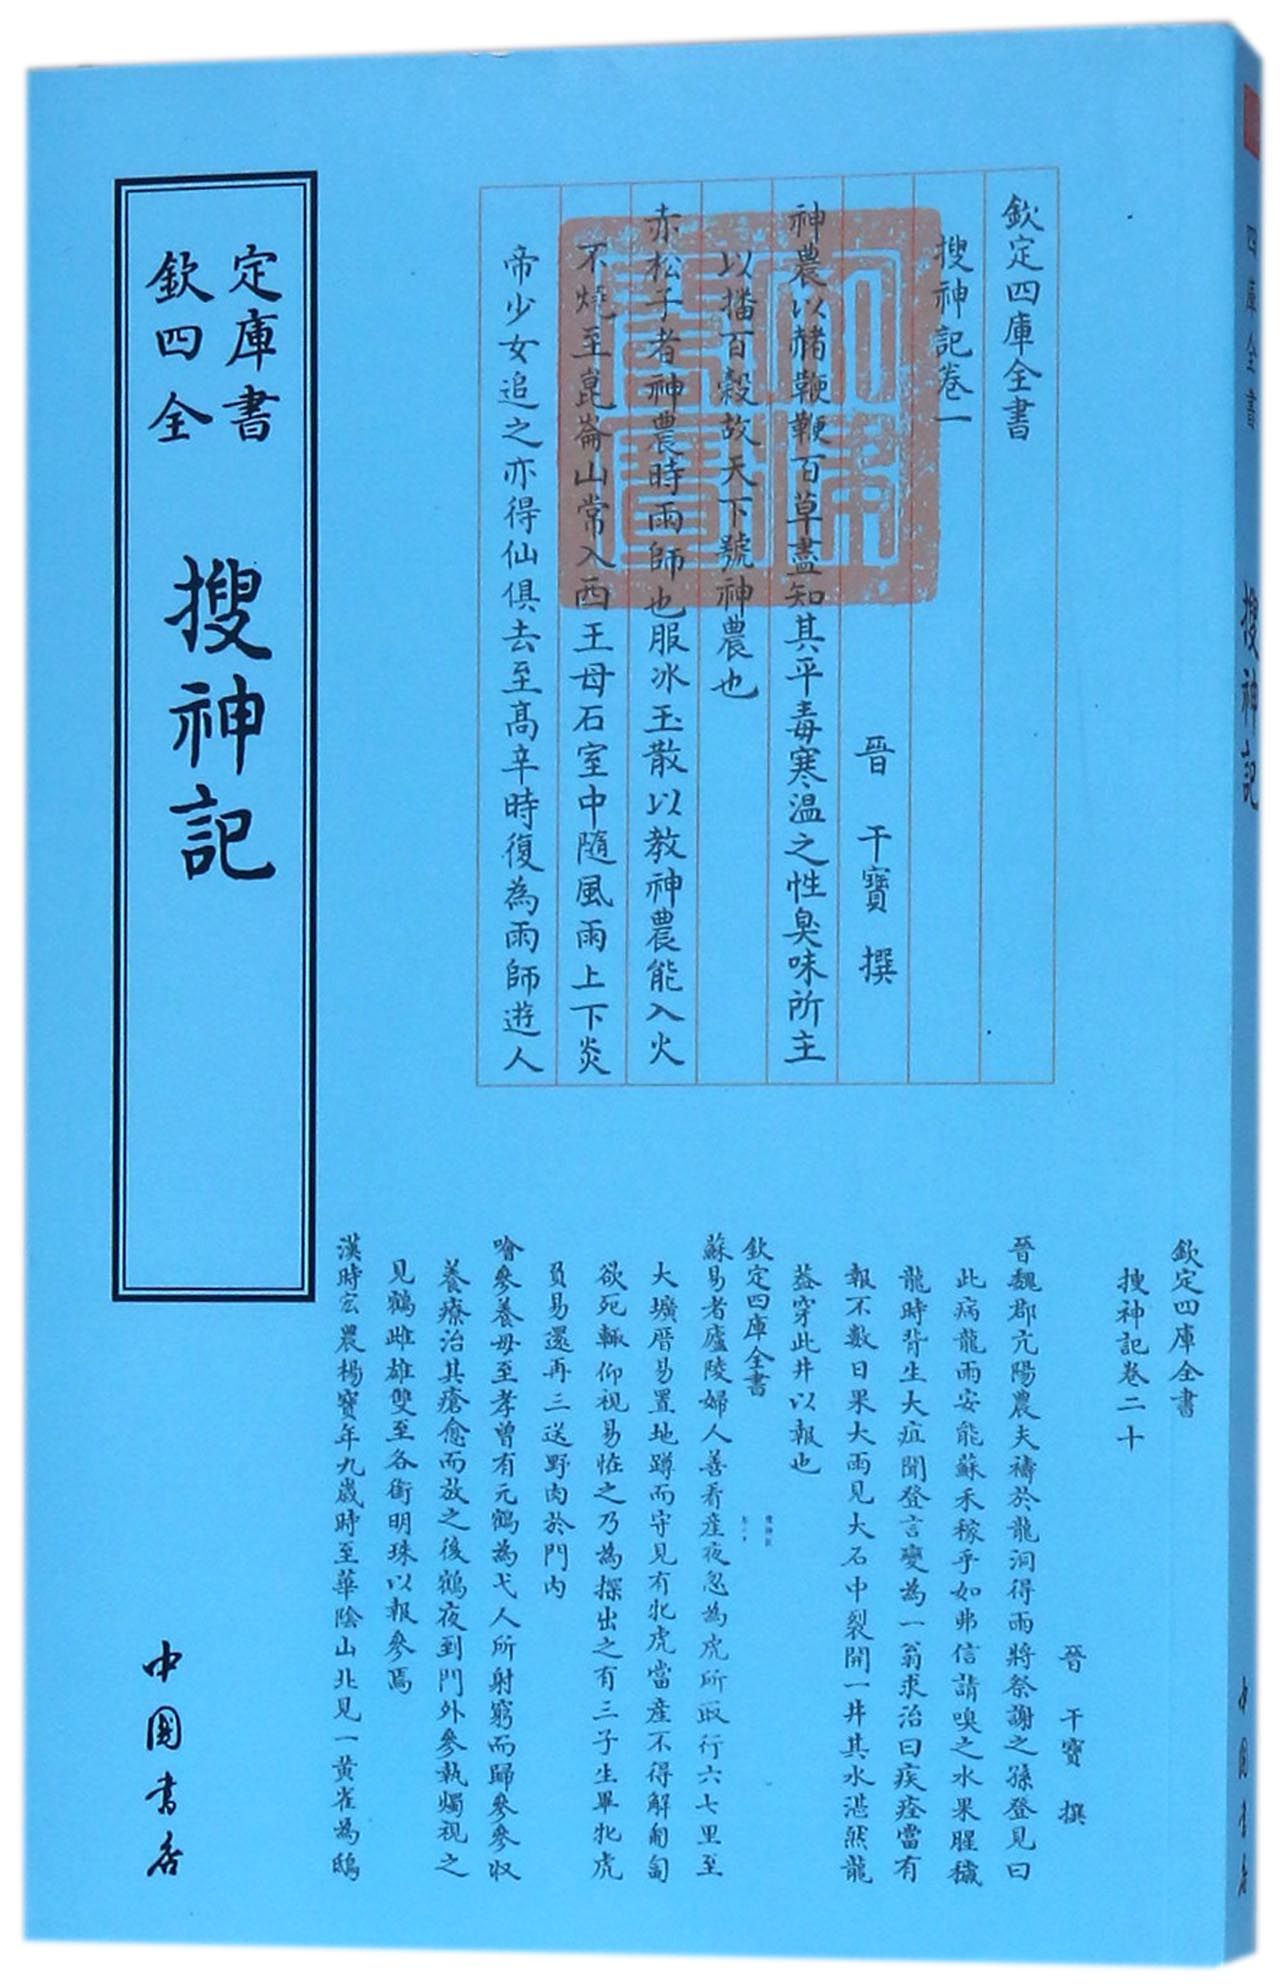 欽定
四庫
全書
搜神記
中國書店
欽定四庫全書
搜神記卷一
晉 干寶 撰
神農以赭鞭鞭百草盡知其平毒寒温之性臭味所主
以播百穀故天下號神農也
赤松子者神農時雨師也服冰玉散以教神農能入火
不燒至崑崙山常入西王母石室中隨風雨上下炎
帝少女追之亦得仙俱去至高辛時復為雨師遊人
欽定四庫全書
搜神記卷二十
晉 干寶 撰
晉魏郡亢陽農夫禱於龍洞得雨將祭謝之孫登見曰
此病龍雨安能蘇禾稼乎如弗信請嗅之水果腥穢
龍時背生大疽聞登言變為一翁求治曰疾痊當有
報不數日果大雨見大石中裂開一井其水湛然龍
葢穿此井以報也
欽定四庫全書
蘇易者廬陵婦人善看産夜忽為虎所取行六七里至
大壙厝易置地蹲而守見有牝虎當産不得解匍匐
欲死輒仰視易恠之乃為探出之有三子生畢牝虎
負易還再三送野肉於門内
噲參養母至孝曾有元鶴為弋人所射窮而歸參參収
養療治其瘡愈而放之後鶴夜到門外參執燭視之
見鶴雌雄雙至各銜明珠以報參焉
漢時宏農楊寶年九歲時至華陰山北見一黄雀為鴟
四庫全書
搜神記
中國書店